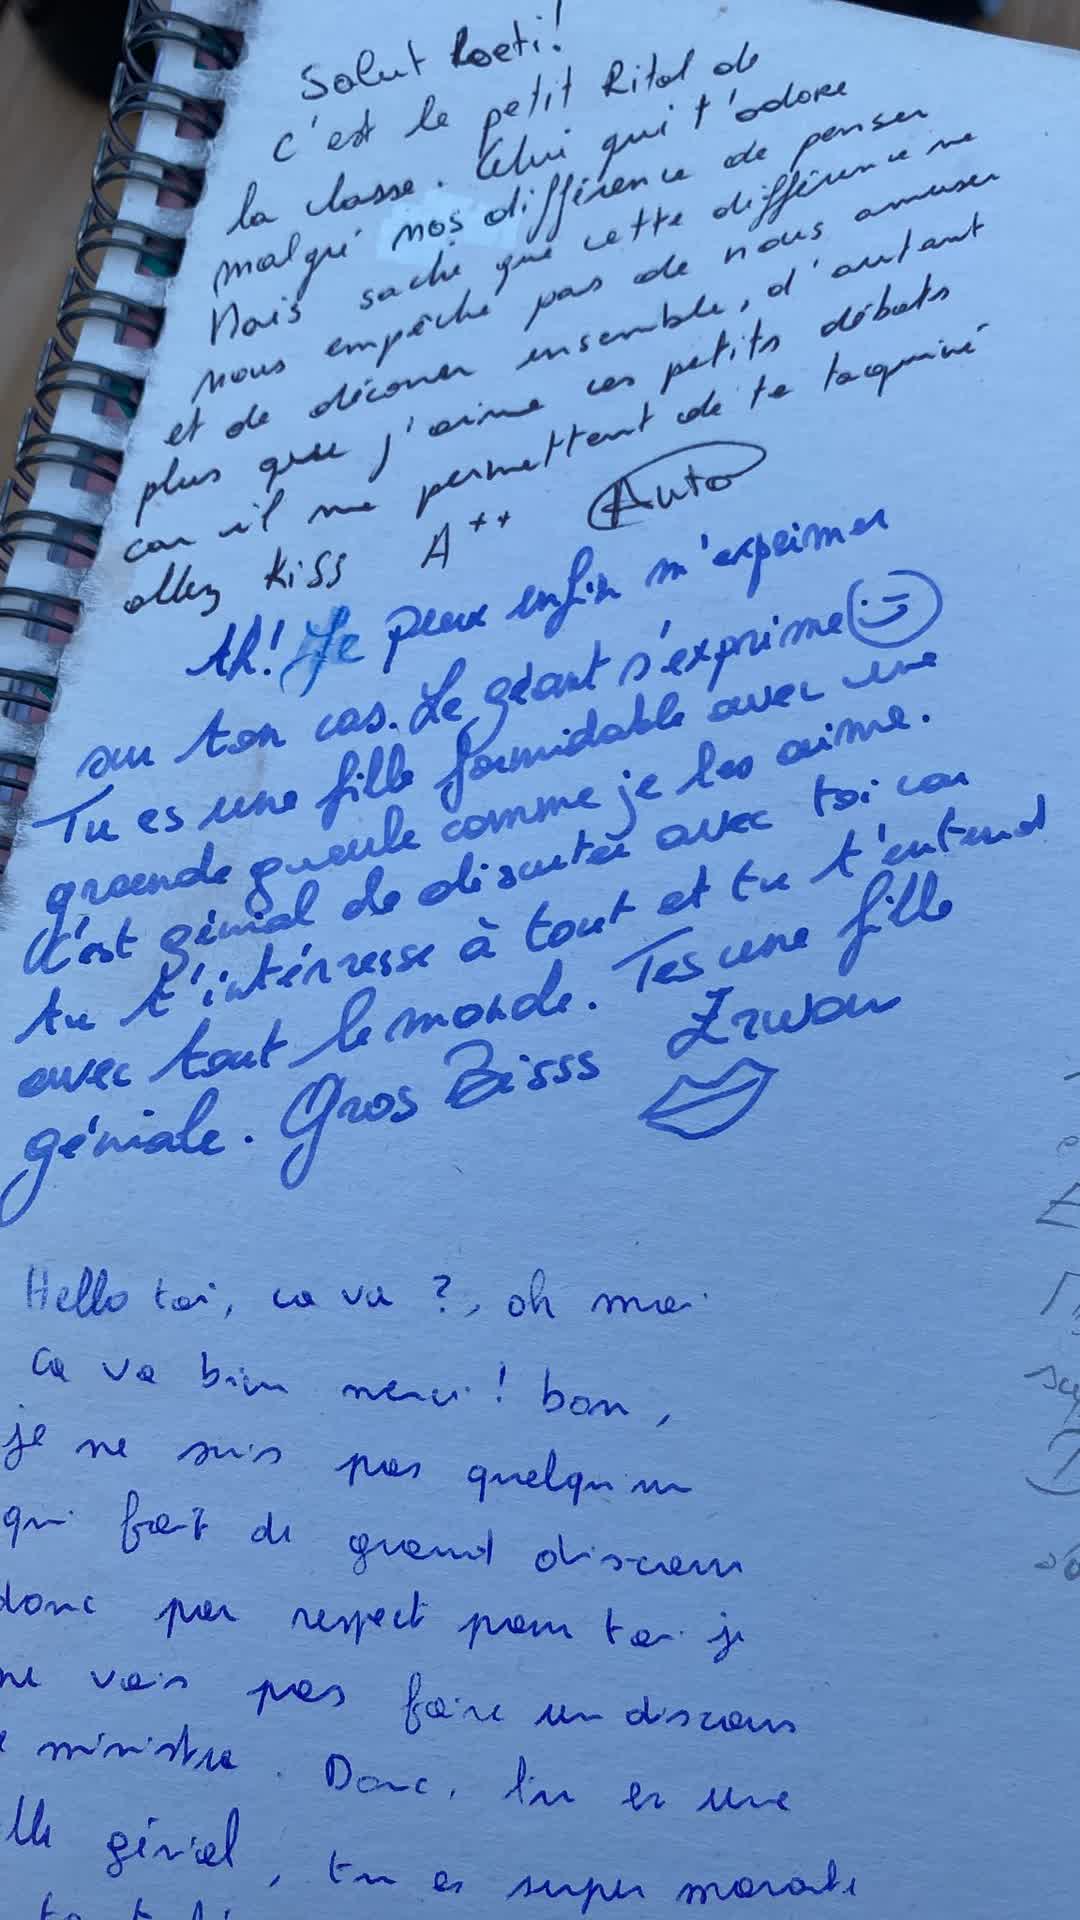 Salut Loeti!
c'est le petit Rital de
la classe. Celui qui t'adore
malgré nos différence de penser
Mais sache que cette différence ne
nous empêche pas de nous amuser
et de déconer ensemble, d'autant
plus que j'aime ces petits débats
car il me permettent de te taquiné
allez kiss A++ Auto
Ah! Je peux enfin m'exprimer
sur ton cas. Le géant s'exprime
Tu es une fille formidable avec une
grande gueule comme je les aime.
C'est génial de discuter avec toi car
tu t'intérresse à tout et tu t'entend
avec tout le monde. Tes une fille
géniale. Gros Bisss Erwan
Hello toi, ca va ?, oh moi
ca va bien merci! bon,
je ne suis pas quelqu'un
qui fait de grand discour
donc par respect pour toi je
ne vais pas faire un discours
ministre. Donc, tu es une
génial, tu es super marante